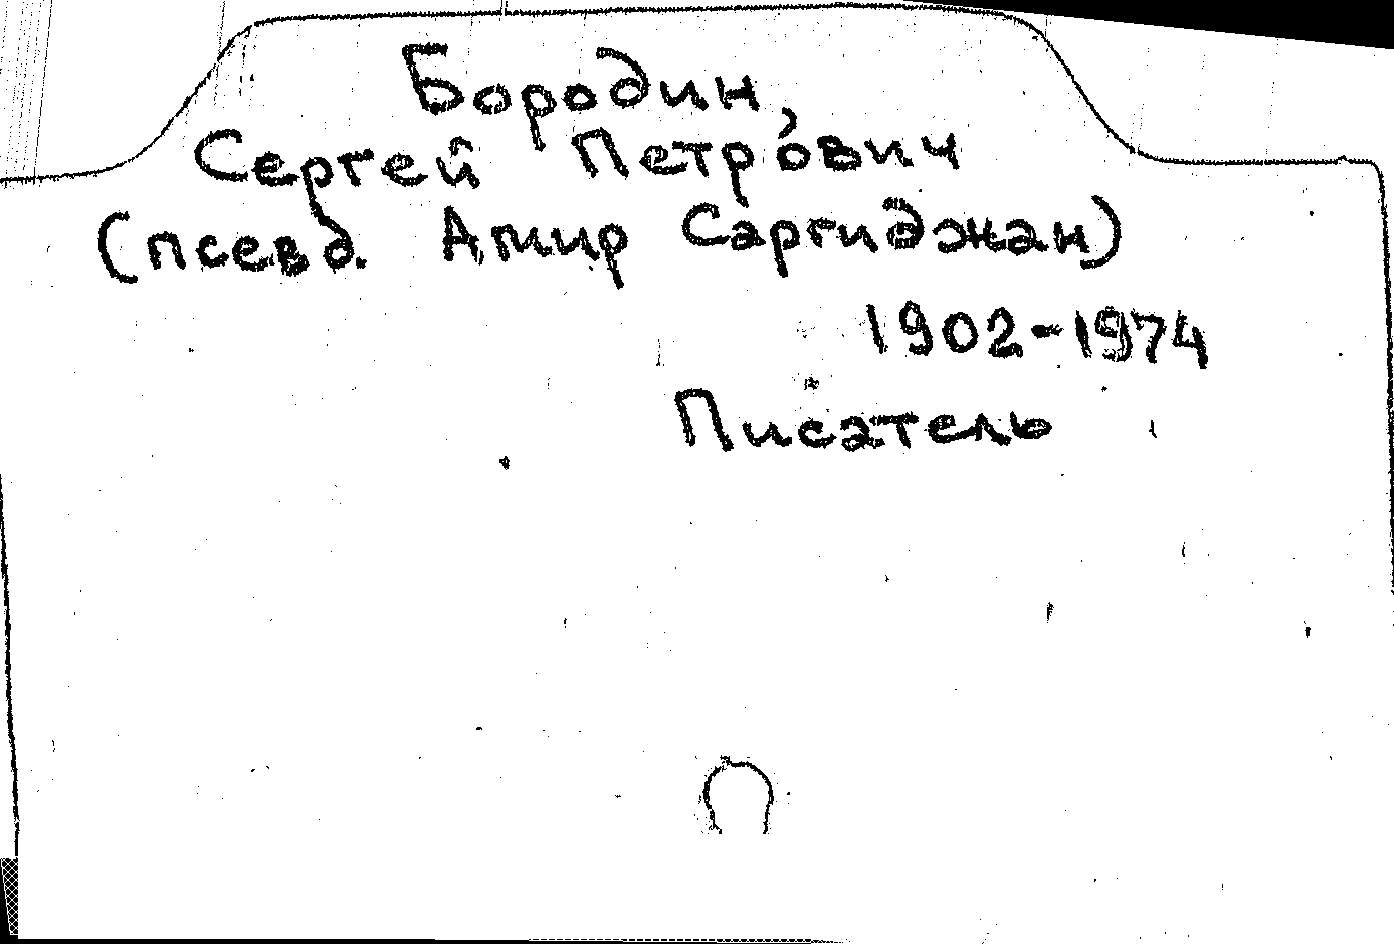 Бородин,
Сергей Петрович
(псевд. Амир Саргиджан)
1902-1974
Писатель